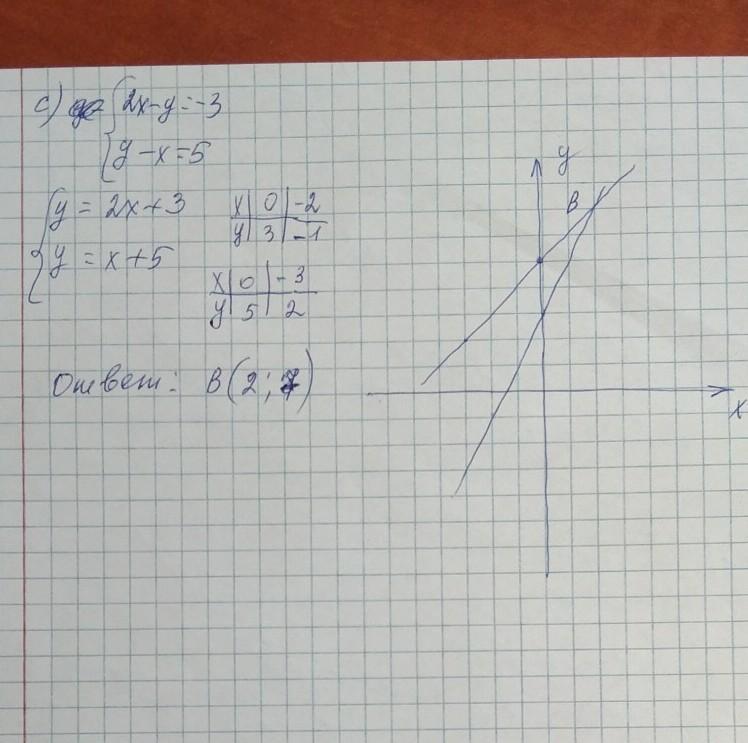 c) { 2x-y=-3
{ y-x=5
{ y = 2x+3
{ y = x+5
x | 0 | -2
y | 3 | -1
x | 0 | -3
y | 5 | 2
Ответ: B(2; 7)
y
B
x